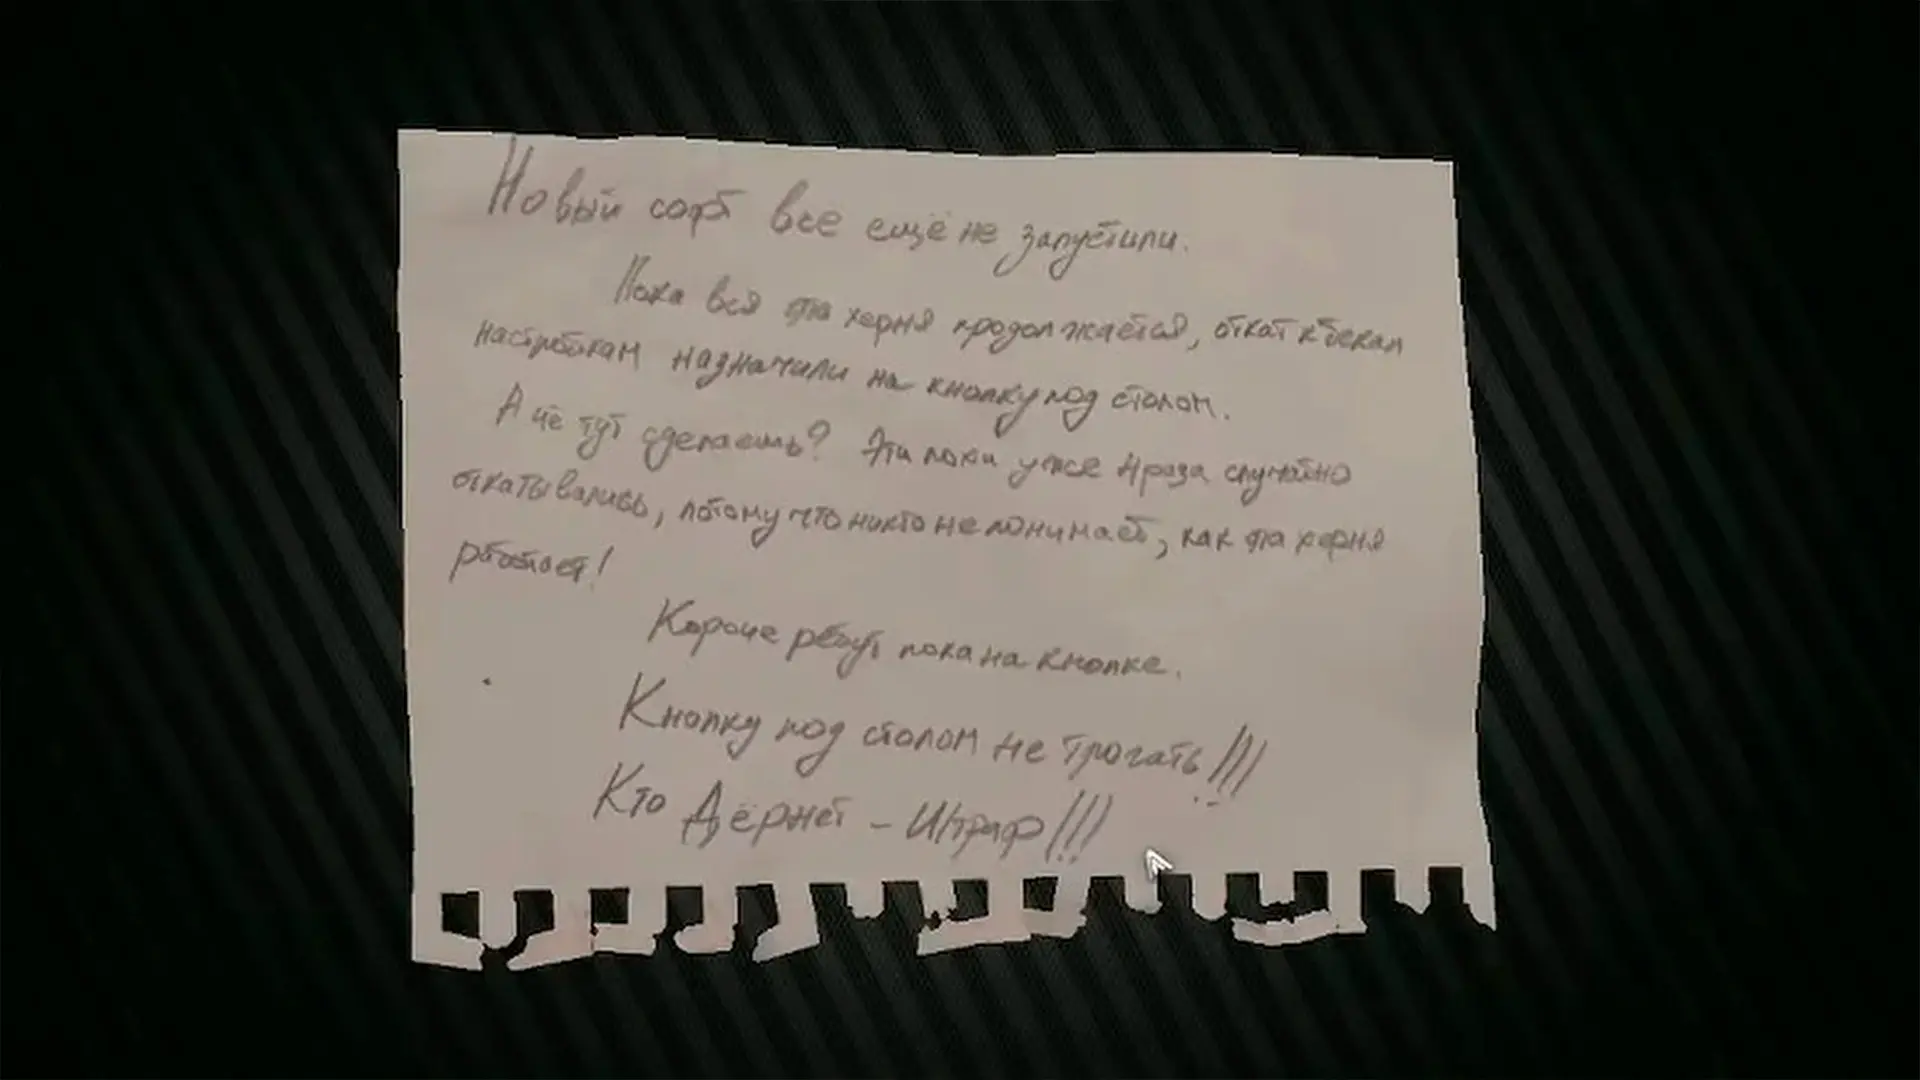 Новый софт все ещё не запустили.
Пока вся эта херня продолжается, откат к бекам
настройкам назначили на кнопку под столом.
А че тут сделаешь? Эти лохи уже 4 раза случайно
откатывались, потому что никто не понимает, как эта херня
работает!
Короче ребут пока на кнопке.
Кнопку под столом не трогать!!!
Кто Дёрнет - Штраф!!!